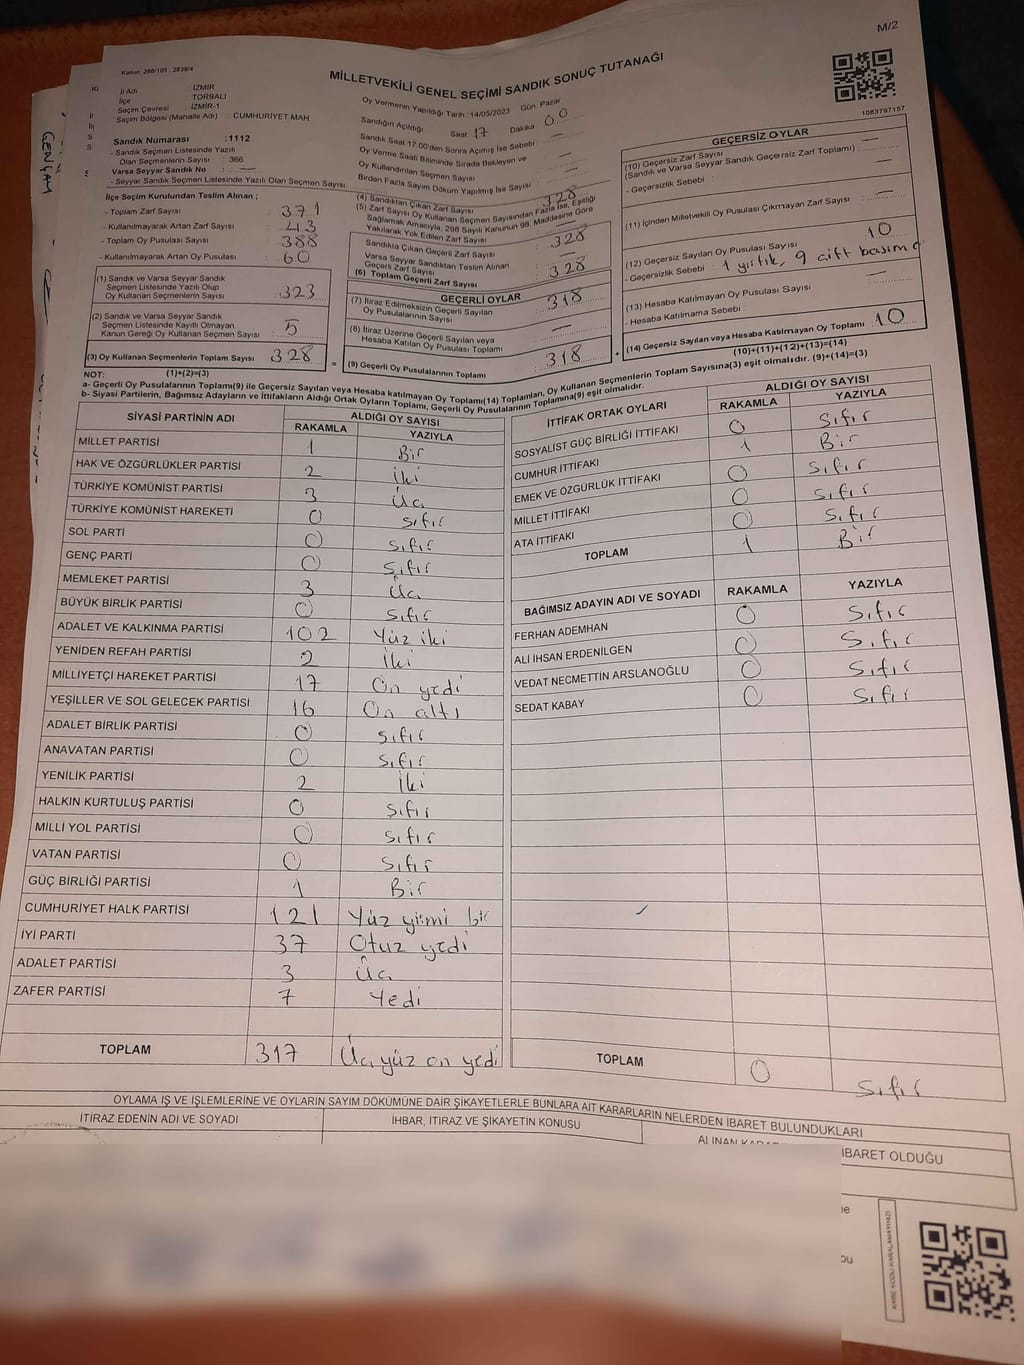 M/2
Kanun: 298/105 - 2839/4
MİLLETVEKİLİ GENEL SEÇİMİ SANDIK SONUÇ TUTANAĞI
1083797157
İl Adı : İZMİR
İlçe : TORBALI
Seçim Çevresi : İZMİR-1
Seçim Bölgesi (Mahalle Adı) : CUMHURİYET MAH.
Sandık Numarası : 1112
- Sandık Seçmen Listesinde Yazılı
Olan Seçmenlerin Sayısı : 366
Varsa Seyyar Sandık No : —
- Seyyar Sandık Seçmen Listesinde Yazılı Olan Seçmen Sayısı:
Oy Vermenin Yapıldığı Tarih : 14/05/2023 Gün: Pazar
Sandığın Açıldığı Saat 17 Dakika 00
Sandık Saat 17.00'den Sonra Açılmış İse Sebebi : —
Oy Verme Saati Bitiminde Sırada Bekleyen ve
Oy Kullandırılan Seçmen Sayısı : —
Birden Fazla Sayım Döküm Yapılmış İse Sayısı : —
İlçe Seçim Kurulundan Teslim Alınan ;
- Toplam Zarf Sayısı : 371
- Kullanılmayarak Artan Zarf Sayısı : 43
- Toplam Oy Pusulası Sayısı : 388
- Kullanılmayarak Artan Oy Pusulası : 60
(1) Sandık ve Varsa Seyyar Sandık
Seçmen Listesinde Yazılı Olup
Oy Kullanan Seçmenlerin Sayısı : 323
(2) Sandık ve Varsa Seyyar Sandık
Seçmen Listesinde Kayıtlı Olmayan
Kanun Gereği Oy Kullanan Seçmen Sayısı : 5
(3) Oy Kullanan Seçmenlerin Toplam Sayısı 328
(1)+(2)=(3)
(4) Sandıktan Çıkan Zarf Sayısı : 328
(5) Zarf Sayısı Oy Kullanan Seçmen Sayısından Fazla İse, Eşitliği
Sağlamak Amacıyla, 298 Sayılı Kanunun 98. Maddesine Göre
Yakılarak Yok Edilen Zarf Sayısı : —
Sandıkta Çıkan Geçerli Zarf Sayısı : 328
Varsa Seyyar Sandıktan Teslim Alınan
Geçerli Zarf Sayısı : —
(6) Toplam Geçerli Zarf Sayısı : 328
GEÇERLİ OYLAR
(7) İtiraz Edilmeksizin Geçerli Sayılan
Oy Pusulalarının Sayısı : 318
(8) İtiraz Üzerine Geçerli Sayılan veya
Hesaba Katılan Oy Pusulası Toplamı : —
= (9) Geçerli Oy Pusulalarının Toplamı 318
GEÇERSİZ OYLAR
(10) Geçersiz Zarf Sayısı
(Sandık ve Varsa Seyyar Sandık Geçersiz Zarf Toplamı) : —
- Geçersizlik Sebebi : —
(11) İçinden Milletvekili Oy Pusulası Çıkmayan Zarf Sayısı : —
(12) Geçersiz Sayılan Oy Pusulası Sayısı : 10
- Geçersizlik Sebebi : 1 yırtık, 9 çift basım
(13) Hesaba Katılmayan Oy Pusulası Sayısı : —
- Hesaba Katılmama Sebebi :
+ (14) Geçersiz Sayılan veya Hesaba Katılmayan Oy Toplamı : 10
(10)+(11)+(12)+(13)=(14)
NOT:
a- Geçerli Oy Pusulalarının Toplamı(9) ile Geçersiz Sayılan veya Hesaba katılmayan Oy Toplamı(14) Toplamları, Oy Kullanan Seçmenlerin Toplam Sayısına(3) eşit olmalıdır. (9)+(14)=(3)
b- Siyasi Partilerin, Bağımsız Adayların ve İttifakların Aldığı Ortak Oyların Toplamı, Geçerli Oy Pusulalarının Toplamına(9) eşit olmalıdır.
SİYASİ PARTİNİN ADI ALDIĞI OY SAYISI
RAKAMLA YAZIYLA
MİLLET PARTİSİ 1 Bir
HAK VE ÖZGÜRLÜKLER PARTİSİ 2 İki
TÜRKİYE KOMÜNİST PARTİSİ 3 Üç
TÜRKİYE KOMÜNİST HAREKETİ 0 Sıfır
SOL PARTİ 0 Sıfır
GENÇ PARTİ 0 Sıfır
MEMLEKET PARTİSİ 3 Üç
BÜYÜK BİRLİK PARTİSİ 0 Sıfır
ADALET VE KALKINMA PARTİSİ 102 Yüz iki
YENİDEN REFAH PARTİSİ 2 İki
MİLLİYETÇİ HAREKET PARTİSİ 17 On yedi
YEŞİLLER VE SOL GELECEK PARTİSİ 16 On altı
ADALET BİRLİK PARTİSİ 0 Sıfır
ANAVATAN PARTİSİ 0 Sıfır
YENİLİK PARTİSİ 2 İki
HALKIN KURTULUŞ PARTİSİ 0 Sıfır
MİLLİ YOL PARTİSİ 0 Sıfır
VATAN PARTİSİ 0 Sıfır
GÜÇ BİRLİĞİ PARTİSİ 1 Bir
CUMHURİYET HALK PARTİSİ 121 Yüz yirmi bir
İYİ PARTİ 37 Otuz yedi
ADALET PARTİSİ 3 Üç
ZAFER PARTİSİ 7 Yedi
TOPLAM 317 Üçyüz on yedi
İTTİFAK ORTAK OYLARI ALDIĞI OY SAYISI
RAKAMLA YAZIYLA
SOSYALİST GÜÇ BİRLİĞİ İTTİFAKI 0 Sıfır
CUMHUR İTTİFAKI 1 Bir
EMEK VE ÖZGÜRLÜK İTTİFAKI 0 Sıfır
MİLLET İTTİFAKI 0 Sıfır
ATA İTTİFAKI 0 Sıfır
TOPLAM 1 Bir
BAĞIMSIZ ADAYIN ADI VE SOYADI RAKAMLA YAZIYLA
FERHAN ADEMHAN 0 Sıfır
ALİ İHSAN ERDENİLGEN 0 Sıfır
VEDAT NECMETTİN ARSLANOĞLU 0 Sıfır
SEDAT KABAY 0 Sıfır
TOPLAM 0 Sıfır
OYLAMA İŞ VE İŞLEMLERİNE VE OYLARIN SAYIM DÖKÜMÜNE DAİR ŞİKAYETLERLE BUNLARA AİT KARARLARIN NELERDEN İBARET BULUNDUKLARI
İTİRAZ EDENİN ADI VE SOYADI
İHBAR, İTİRAZ VE ŞİKAYETİN KONUSU
İBARET OLDUĞU
KARE KODU KARALAMAYINIZ!